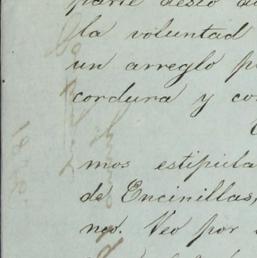 parte desto
la voluntad
un arreglo p
cordura y co
mos estipula
de Encinillas,
nes. Veo por